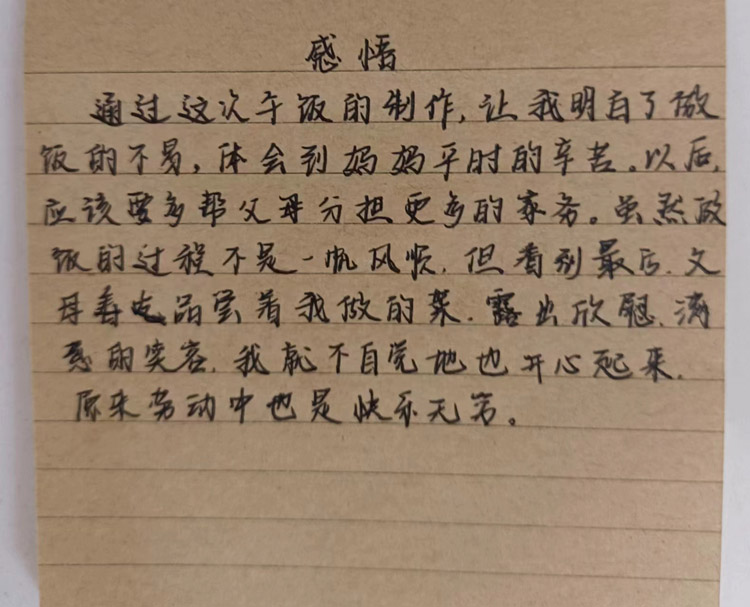 感悟
通过这次午饭的制作,让我明白了做
饭的不易,体会到妈妈平时的辛苦。以后,
应该要多帮父母分担更多的家务。虽然做
饭的过程不是一帆风顺,但看到最后,父
母品尝着我做的菜,露出欣慰、满
意的笑容,我就不自觉地也开心起来,
原来劳动中也是快乐无穷。